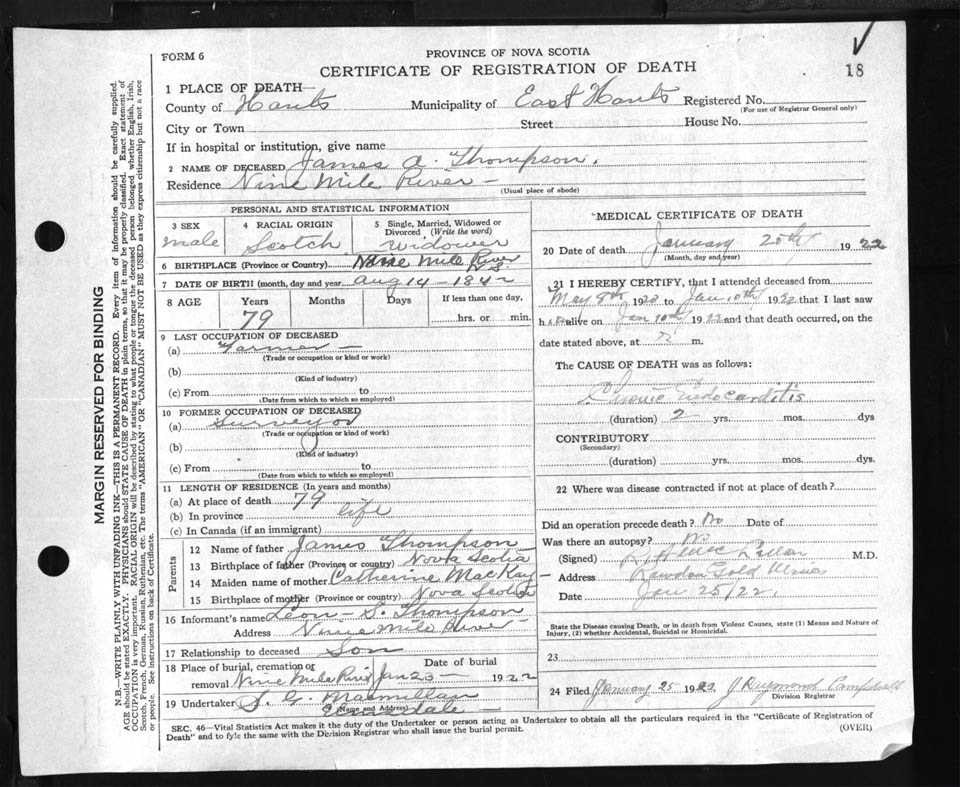 FORM 6
PROVINCE OF NOVA SCOTIA
CERTIFICATE OF REGISTRATION OF DEATH
18
1 PLACE OF DEATH—
County of Hants Municipality of East Hants Registered No.
(For use of Registrar General only)
City or Town Street House No.
If in hospital or institution, give name
2 NAME OF DECEASED James A. Thompson.
Residence Nine Mile River —
(Usual place of abode)
PERSONAL AND STATISTICAL INFORMATION
3 SEX 4 RACIAL ORIGIN 5 Single, Married, Widowed or Divorced (Write the word)
male Scotch Widower
6 BIRTHPLACE (Province or Country) Nine Mile River N.S.
7 DATE OF BIRTH (month, day and year) Aug 14 - 1842
8 AGE Years Months Days If less than one day,
79 hrs. or min.
9 LAST OCCUPATION OF DECEASED
(a) Farmer —
(Trade or occupation or kind of work)
(b)
(Kind of industry)
(c) From to
(Date from which to which so employed)
10 FORMER OCCUPATION OF DECEASED
(a) Surveyor
(Trade or occupation or kind of work)
(b)
(Kind of industry)
(c) From to
(Date from which to which so employed)
11 LENGTH OF RESIDENCE (In years and months)
(a) At place of death 79
(b) In province life
(c) In Canada (if an immigrant)
Parents
12 Name of father James Thompson
13 Birthplace of father (Province or country) Nova Scotia
14 Maiden name of mother Catherine MacKay
15 Birthplace of mother (Province or country) Nova Scotia
16 Informant's name Leon S. Thompson
Address Nine Mile River
17 Relationship to deceased Son
18 Place of burial, cremation or removal Nine Mile River Date of burial Jan 23 — 1922
19 Undertaker S. G. Macmillan
(Name and Address) Elmsdale —
MEDICAL CERTIFICATE OF DEATH
20 Date of death January 20th 1922
(Month, day and year)
21 I HEREBY CERTIFY, that I attended deceased from
May 8th 1920 to Jan 10th 1922 that I last saw
h alive on Jan 10th 1922 and that death occurred, on the
date stated above, at m.
The CAUSE OF DEATH was as follows:
Chronic Endocarditis
(duration) 2 yrs. mos. dys
CONTRIBUTORY
(Secondary)
(duration) yrs. mos. dys.
22 Where was disease contracted if not at place of death?
Did an operation precede death? No Date of
Was there an autopsy? No
(Signed) M.D.
Address Rawdon Gold Mines
Date Jan 25/22.
State the Disease causing Death, or in death from Violent Causes, state (1) Means and Nature of Injury, (2) whether Accidental, Suicidal or Homicidal.
23
24 Filed January 25 1922 J Raymond Campbell
Division Registrar
SEC. 46—Vital Statistics Act makes it the duty of the Undertaker or person acting as Undertaker to obtain all the particulars required in the "Certificate of Registration of
Death" and to fyle the same with the Division Registrar who shall issue the burial permit.
(OVER)
MARGIN RESERVED FOR BINDING
N.B.—WRITE PLAINLY WITH UNFADING INK—THIS IS A PERMANENT RECORD. Every item of information should be carefully supplied.
AGE should be stated EXACTLY. PHYSICIANS should STATE CAUSE OF DEATH in plain terms, so that it may be properly classified. Exact statement of
OCCUPATION is very important. RACIAL ORIGIN will be described by stating to what people or tongue the deceased person belonged whether English, Irish,
Scotch, French, German, Russian, Ruthenian, etc. The terms "AMERICAN" OR "CANADIAN" MUST NOT BE USED as they express citizenship but not a race
or people. See instructions on back of Certificate.